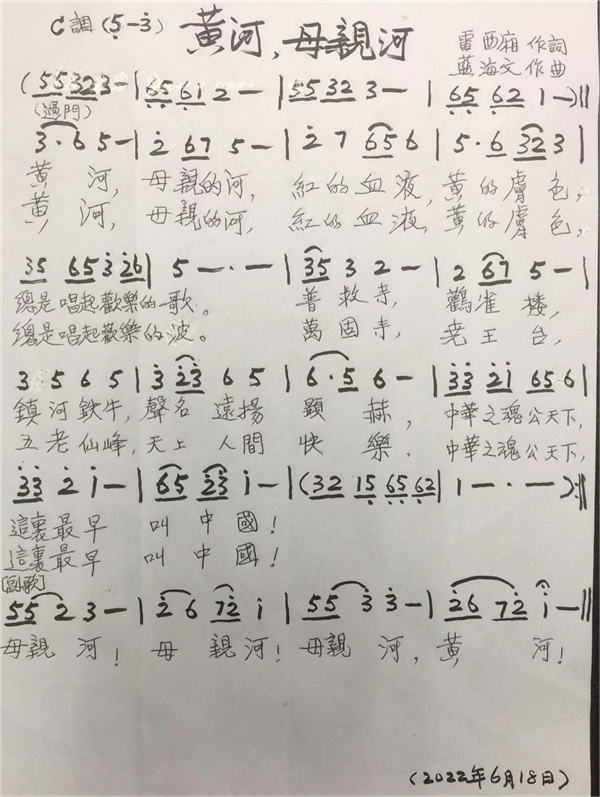 C調(5̣-3̇) 黃河,母親河 雷西廂 作詞
藍海文 作曲
(55 32 3-|65 61 2-|55 32 3-|65 62 1-)||
(過門)
3·6 5-|2̇ 67 5-|2̇ 7 65 6|5·6 32 3|
黃 河, 母親的河, 紅的血液, 黃的膚色,
黃 河, 母親的河, 紅的血液, 黃的膚色,
35 65 3̇ 2̇6|5-·-|35 3 2-|2 67 5-|
總是唱起歡樂的歌。 普救寺, 鸛雀樓,
總是唱起歡樂的波。 萬固寺, 堯王台,
3 5 6 5|3̇ 2̇3̇ 6 5|6·5 6-|3̇3̇ 2̇1̇ 65 6|
鎮河鉄牛, 聲名遠揚 顯赫, 中華之魂公天下,
五老仙峰, 天上人間 快樂, 中華之魂公天下,
3̇3̇ 2̇ 1̇-|65 2̇3̇ 1̇-|(32 15 65 62|1-·-):||
這裏最早 叫中國!
這裏最早 叫中國!
[副歌]
55 2 3-|2̇6 72̇ 1̇|55 3̇ 3̇-|2̇6 72̇ 1̇-||
母親河! 母親河! 母親河, 黃河!
(2022年6月18日)